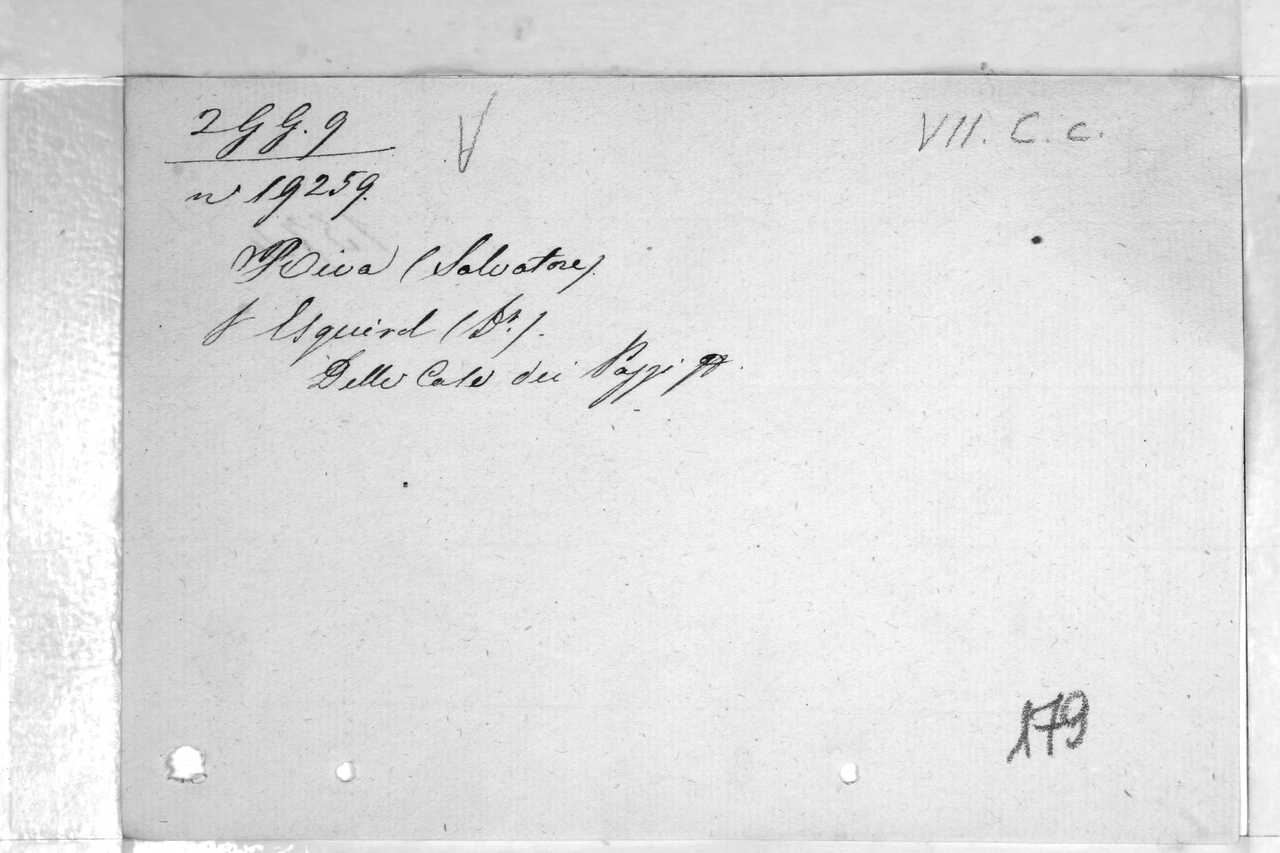 2 G G. 9
VII. C. c.
n 19259.
Riva (Salvatore).
Esquirol (Dr.).
Delle Case dei Pazzi
179